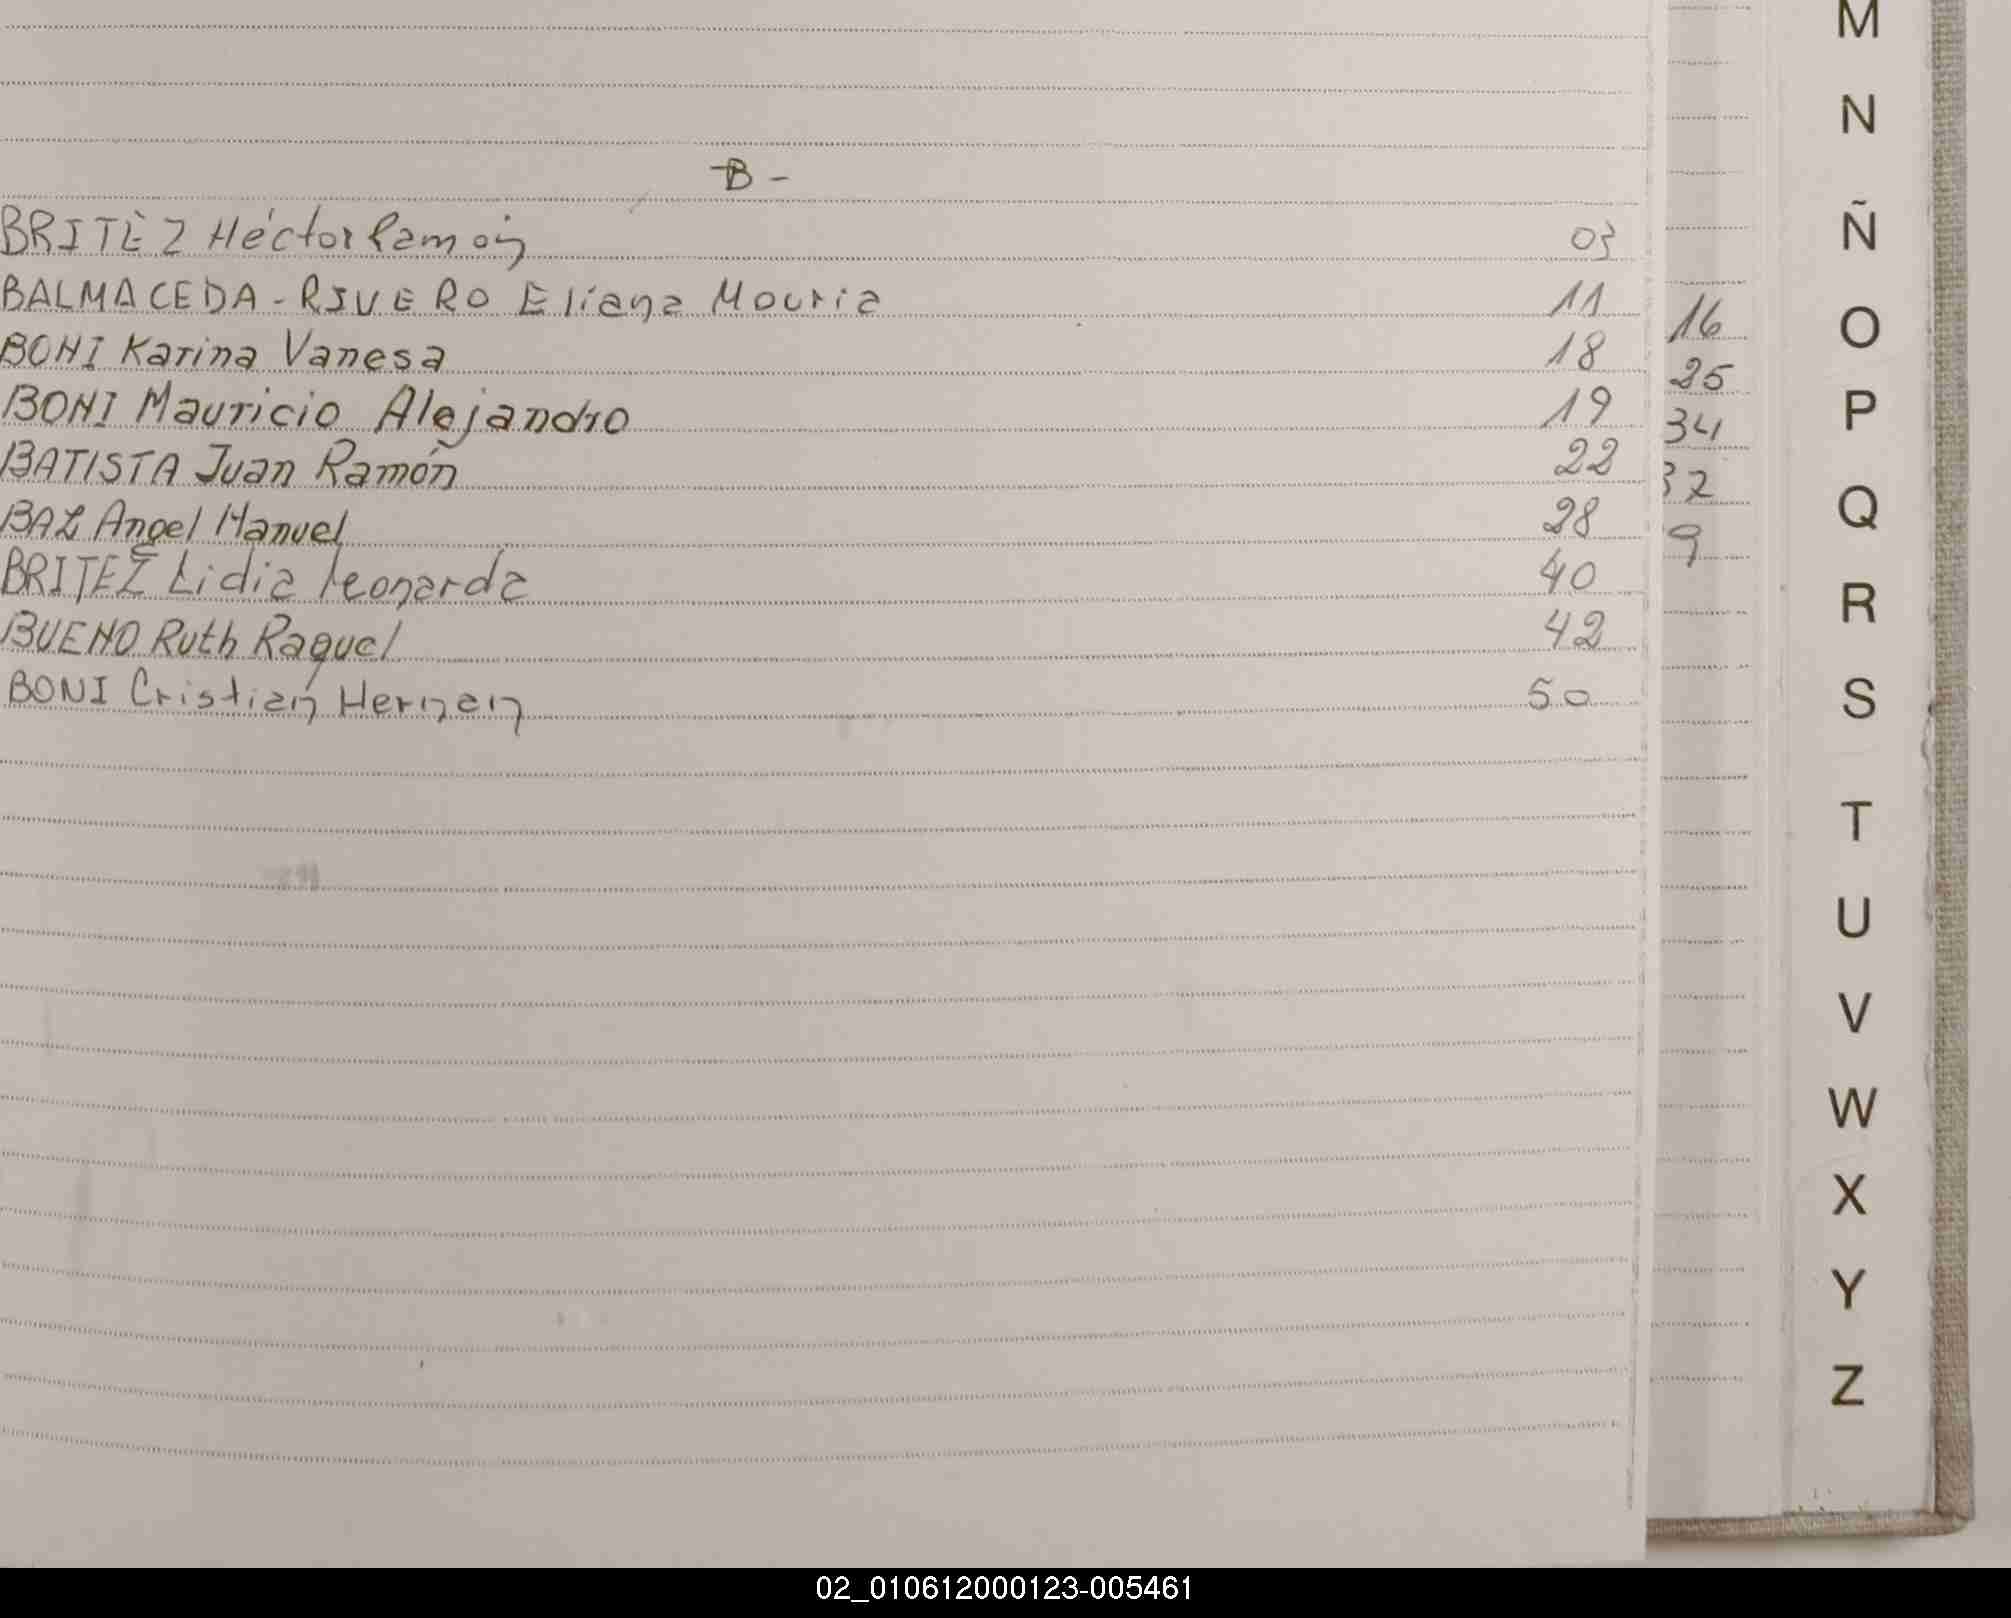 -B-
BRITEZ Héctor Ramón 03
BALMACEDA-RIVERO Eliana Mouria 11
BONI Karina Vanesa 18
BONI Mauricio Alejandro 19
BATISTA Juan Ramón 22
BAZ Angel Manuel 28
BRITEZ Lidia Leonarda 40
BUENO Ruth Raquel 42
BONI Cristian Hernan 50
16
25
34
37
9
M
N
Ñ
O
P
Q
R
S
T
U
V
W
X
Y
Z
02_010612000123-005461